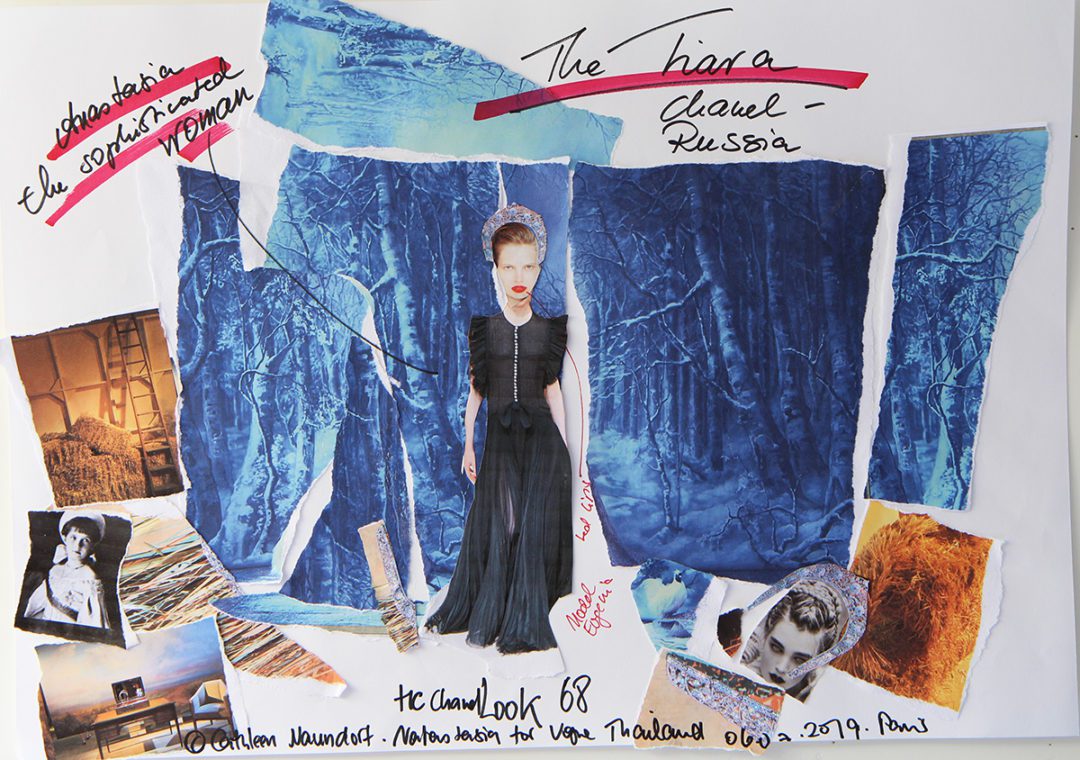 Anastasia
the sophisticated
woman
The Tiara
Chanel -
Russia
red lips
Model
Evgenia
HC Chanel LOOK 68
© Cathleen Naundorf. Natastasia for Vogue Thailand 2019. Paris